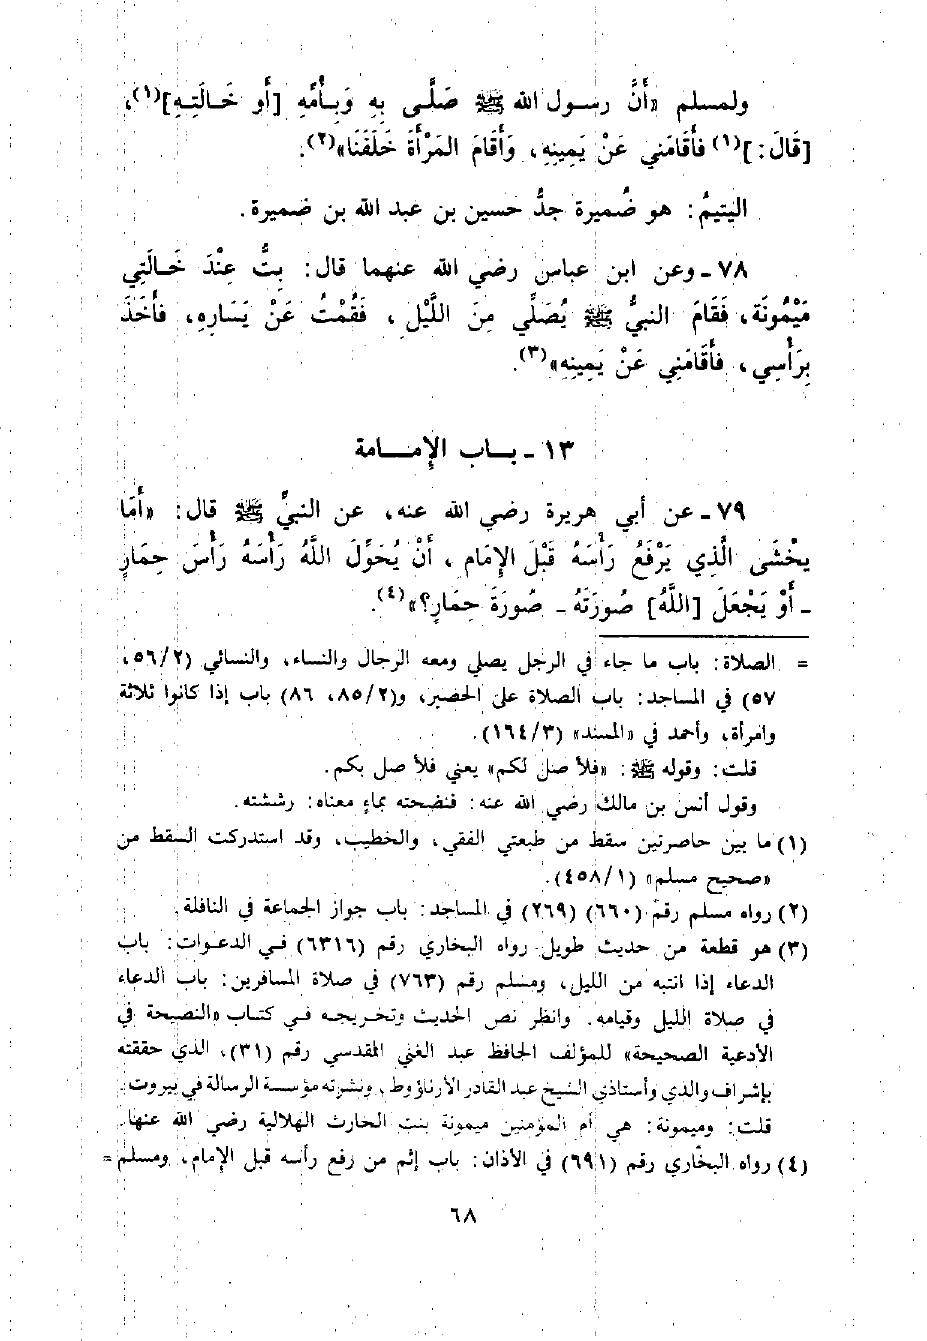 ولمسلم «أَنَّ رسول الله ﷺ صَلَّى بِهِ وَبِأُمِّهِ [أَو خَالَتِهِ](١)،
[قَالَ:](١) فأَقَامَني عَنْ يَمِينِهِ، وَأَقَامَ المَرْأَةَ خَلْفَنَا»(٢).
اليَتيمُ: هو ضُميرة جدُّ حسين بن عبد الله بن ضميرة.
٧٨ ـ وعن ابن عباس رضي الله عنهما قال: بِتُّ عِنْدَ خَالَتِي
مَيْمُونَة، فَقَامَ النبيُّ ﷺ يُصَلِّي مِنَ اللَّيْلِ، فَقُمْتُ عَنْ يَسَارِهِ، فأَخَذَ
بِرَأْسِي، فأَقَامَنِي عَنْ يَمِينِهِ»(٣).
١٣ ـ بـاب الإمـامة
٧٩ ـ عن أبي هريرة رضي الله عنه، عن النبيِّ ﷺ قال: «أَمَا
يخْشَى الَّذِي يَرْفَعُ رَأْسَهُ قَبْلَ الإِمَامِ، أَنْ يُحَوِّلَ اللَّهُ رَأْسَهُ رَأْسَ حِمَارٍ
ـ أَوْ يَجْعَلَ [اللَّهُ] صُورَتَهُ ـ صُورَةَ حِمَارٍ؟»(٤).
= الصلاة: باب ما جاء في الرجل يصلي ومعه الرجال والنساء، والنسائي (٥٦/٢،
٥٧) في المساجد: باب الصلاة على الحصير، و(٨٥/٢، ٨٦) باب إذا كانوا ثلاثة
وامرأة، وأحمد في «المسند» (١٦٤/٣).
قلت: وقوله ﷺ: «فلأصل لكم» يعني فلأصل بكم.
وقول أنس بن مالك رضي الله عنه: فنضحته بماءٍ معناه: رششته.
(١) ما بين حاصرتين سقط من طبعتي الفقي، والخطيب، وقد استدركت السقط من
«صحيح مسلم» (٤٥٨/١).
(٢) رواه مسلم رقم (٦٦٠) (٢٦٩) في المساجد: باب جواز الجماعة في النافلة.
(٣) هو قطعة من حديث طويل رواه البخاري رقم (٦٣١٦) في الدعوات: باب
الدعاء إذا انتبه من الليل، ومسلم رقم (٧٦٣) في صلاة المسافرين: باب الدعاء
في صلاة الليل وقيامه. وانظر نص الحديث وتخريجه في كتاب «النصيحة في
الأدعية الصحيحة» للمؤلف الحافظ عبد الغني المقدسي رقم (٣١)، الذي حققته
بإشراف والدي وأستاذي الشيخ عبد القادر الأرناؤوط، ونشرته مؤسسة الرسالة في بيروت.
قلت: وميمونة: هي أم المؤمنين ميمونة بنت الحارث الهلالية رضي الله عنها.
(٤) رواه البخاري رقم (٦٩١) في الأذان: باب إثم من رفع رأسه قبل الإمام، ومسلم =
٦٨